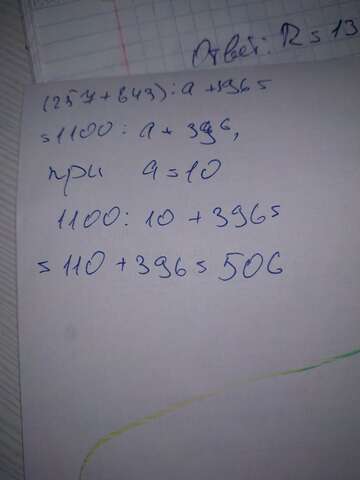 Ответ: R = 13
(257 + 843) : a + 396 =
= 1100 : a + 396,
при a = 10
1100 : 10 + 396 =
= 110 + 396 = 506